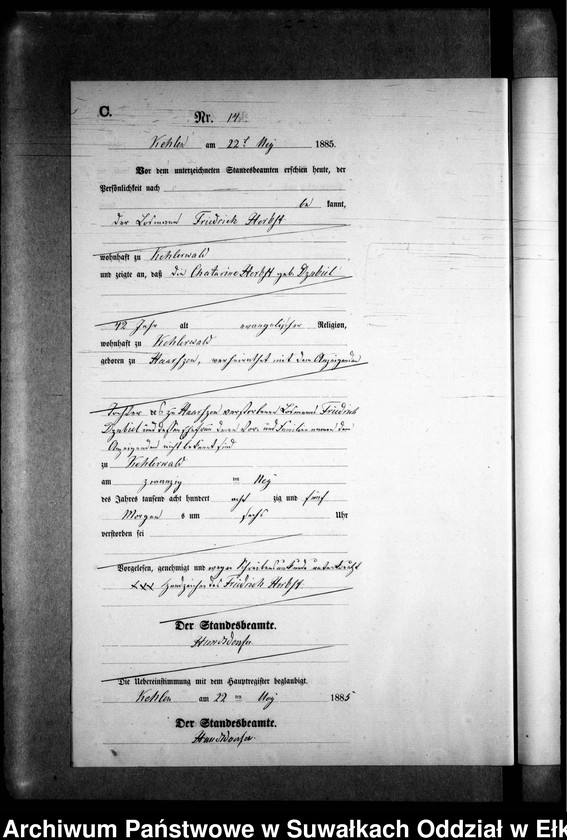 C.
Nr. 14
Kehlen am 22t Mey 1885.
Vor dem unterzeichneten Standesbeamten erschien heute, der
Persönlichkeit nach
be kannt,
der Losmann Friedrich Herbst
wohnhaft zu Kehlerwald
und zeigte an, daß die Chatarine Herbst geb. Dzabiel
42 Jahr alt evangelischer Religion,
wohnhaft zu Kehlerwald
geboren zu Haarszen, verheirathet mit dem Anzeigenden
Tochter des zu Haarszen verstorbenen Losmanns Friedrich
Dzabiel und dessen Ehefrau deren Vor und Familien namen dem
Anzeigenden nicht bekannt sind
zu Kehlerwald
am zwanzig ten Mey
des Jahres tausend acht hundert acht zig und fünf
Morgen s um sechs Uhr
verstorben sei
Vorgelesen, genehmigt und wegen Schreibensunkunde unterkreuzt
xxx Handzeichen des Friedrich Herbst
Der Standesbeamte.
Die Uebereinstimmung mit dem Hauptregister beglaubigt.
Kehlen am 22 ten Mey 1885
Der Standesbeamte.
Archiwum Państwowe w Suwałkach Oddział w Ełk